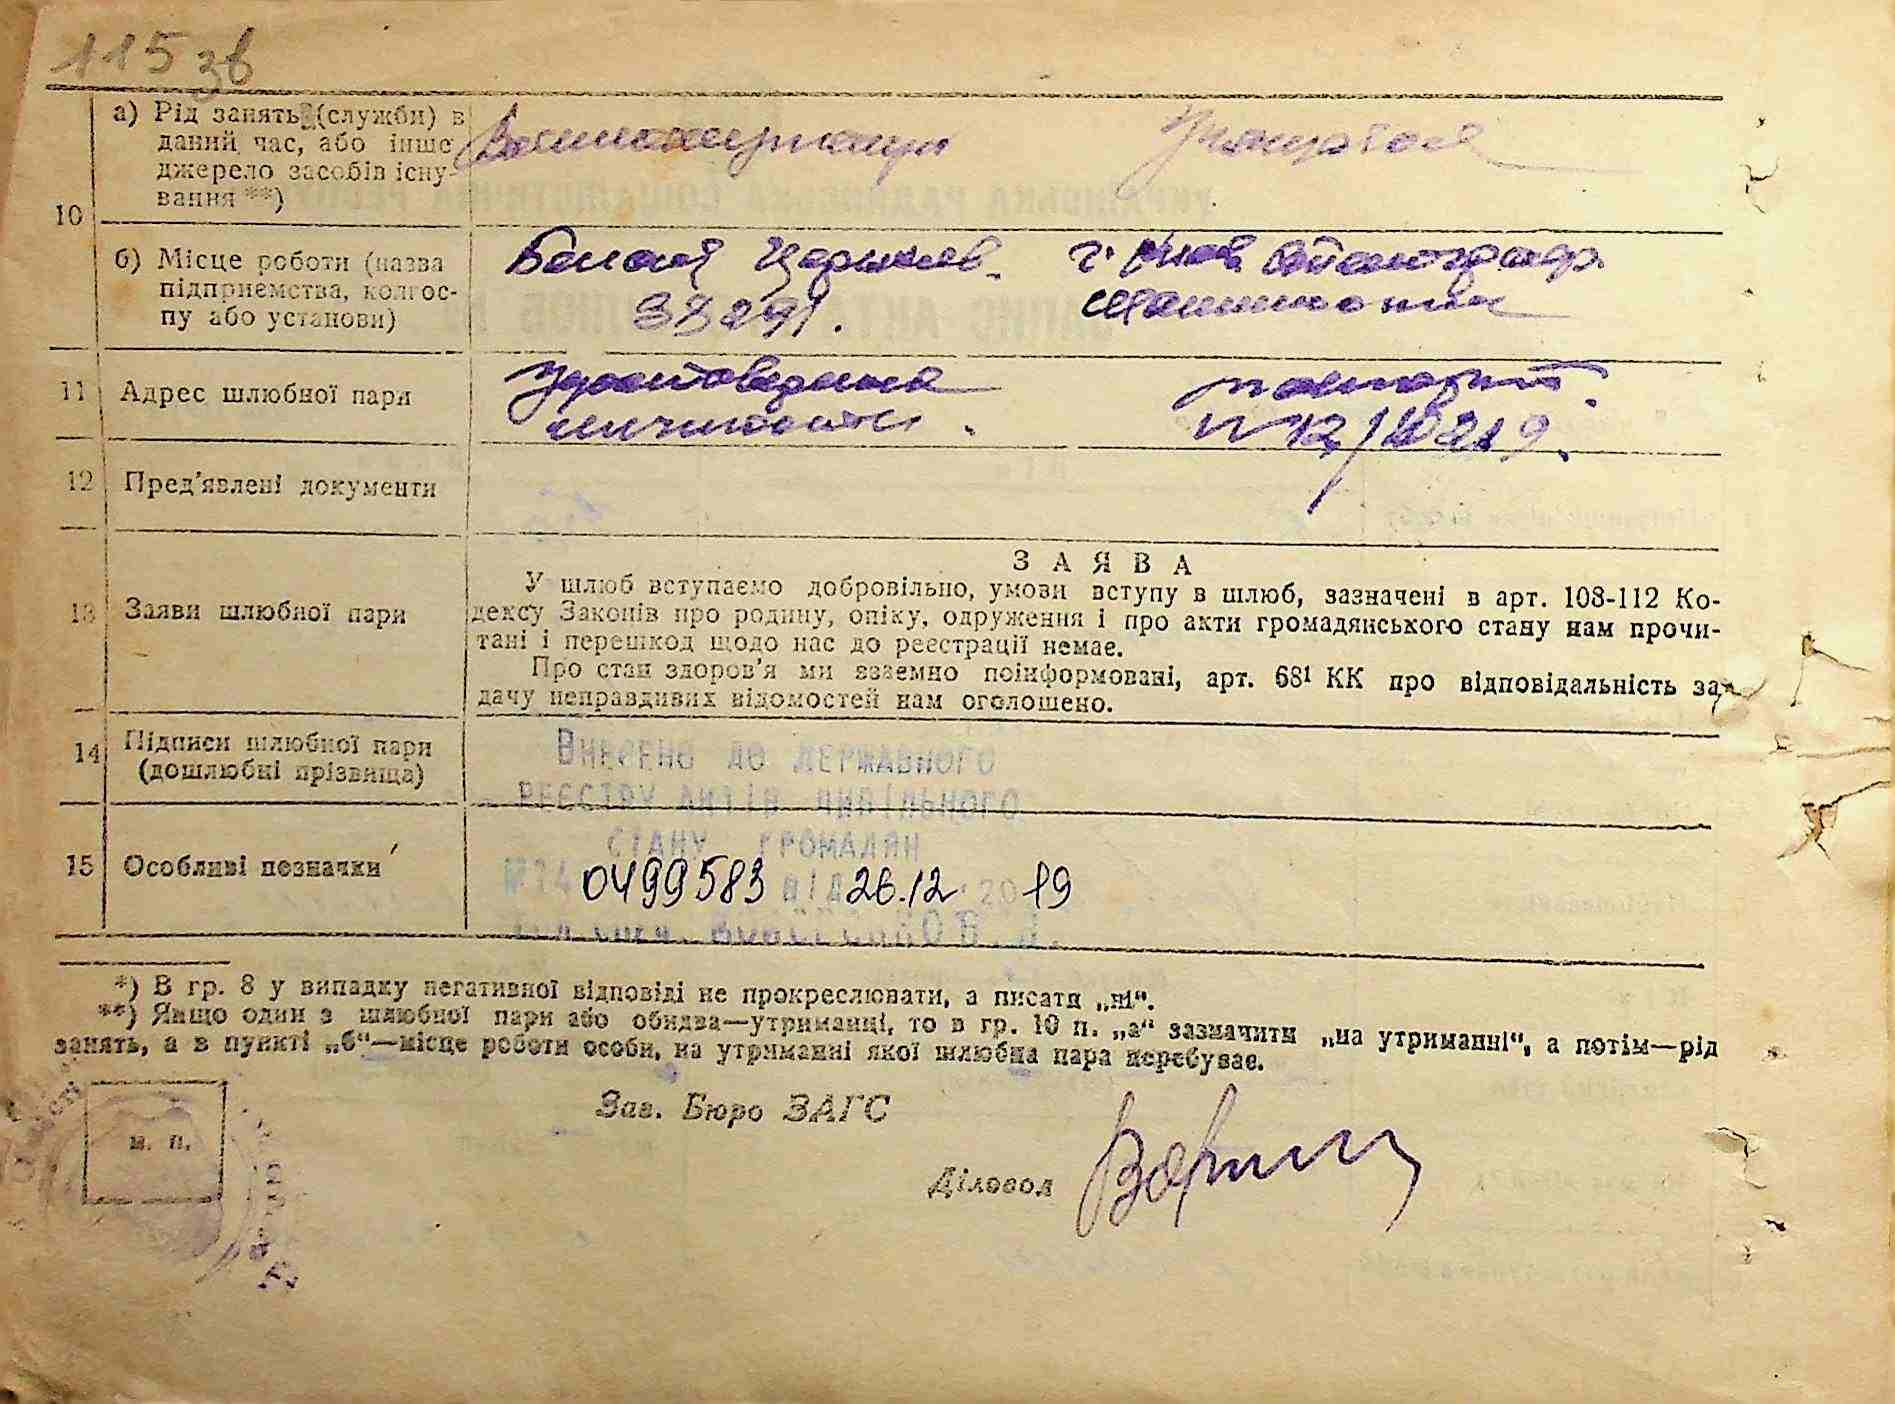 115 зв
а) Рід занять (служби) в
даний час, або інше
джерело засобів існу-
вання **)
Военнослужащий
Учащаяся
10
б) Місце роботи (назва
підприємства, колгос-
пу або установи)
Белая Церковь
г. Киев
37291.
11 Адрес шлюбної пари
Удостоверение
личности.
паспорт
№ 12/10219.
12 Пред'явлені документи
13 Заяви шлюбної пари
ЗАЯВА
У шлюб вступаємо добровільно, умови вступу в шлюб, зазначені в арт. 108-112 Ко-
дексу Законів про родину, опіку, одруження і про акти громадянського стану нам прочи-
тані і перешкод щодо нас до реєстрації немає.
Про стан здоров'я ми взаємно поінформовані, арт. 68¹ КК про відповідальність за
дачу неправдивих відомостей нам оголошено.
14 Підписи шлюбної пари
(дошлюбні прізвища)
Внесено до Державного
реєстру актів цивільного
стану громадян
15 Особливі позначки
0499583 від 26.12 2019
*) В гр. 8 у випадку негативної відповіді не прокреслювати, а писати „ні“.
**) Якщо один з шлюбної пари або обидва—утриманці, то в гр. 10 п. „а“ зазначити „на утриманні“, а потім—рід
занять, а в пункті „б“—місце роботи особи, на утриманні якої шлюбна пара перебуває.
м. п.
Зав. Бюро ЗАГС
Діловод